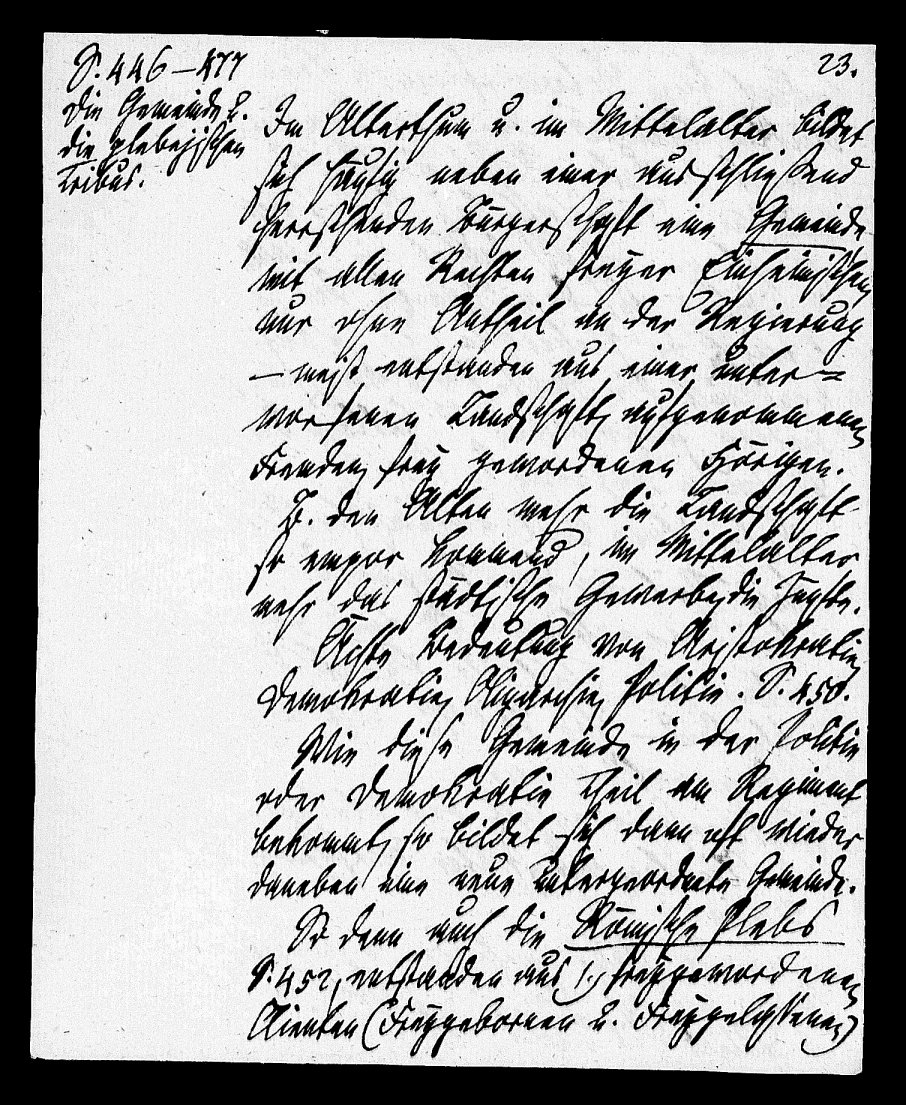 23.
S. 446 – 477
Die Gemeinde u.
die plebejischen
Tribus.
Im Alterthum u. im Mittelalter bildet
sich häufig neben einer ausschließend
herrschenden Bürgerschaft eine Gemeinde
mit allen Rechten freyer Einheimischen,
nur ohne Antheil an der Regierung
– meist entstanden aus einer unter=
worfenen Landschaft, aufgenommenen
Fremden, frey gewordenen Hörigen.
B. den Alten mehr die Landschaft
so empor kommend, im Mittelalter
mehr das städtische Gewerbe, die Zünfte.
Ächte Bedeutung von Aristokratie,
Demokratie, Oligarchie, Politie. S. 450.
Wie diese Gemeinde in der Politie
oder Demokratie Theil am Regiment
bekommt, so bildet sich dann oft wieder
daneben eine neue untergeordnete Gemeinde.
So denn auch die Römische Plebs
S. 452, entstanden aus 1.) freygewordenen
Clienten (Freygebornen u. Freygelassenen)